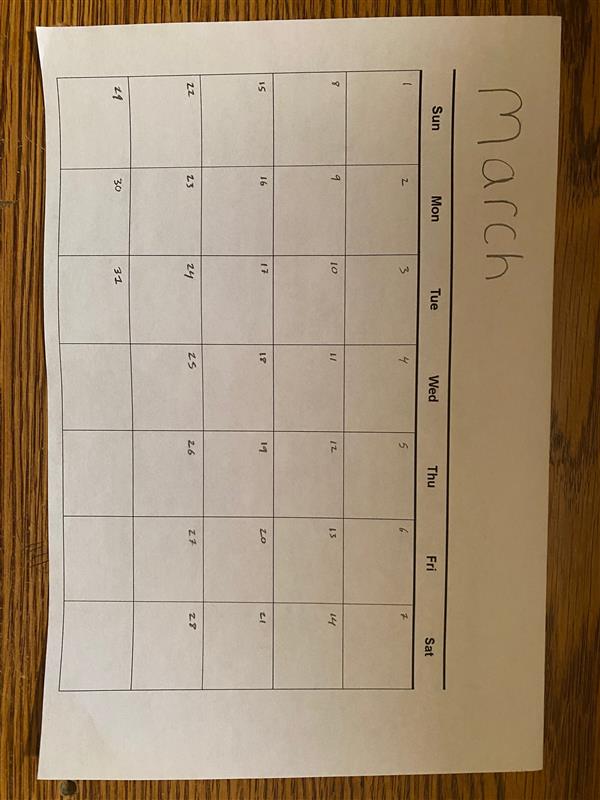 March
Sun Mon Tue Wed Thu Fri Sat
1 2 3 4 5 6 7
8 9 10 11 12 13 14
15 16 17 18 19 20 21
22 23 24 25 26 27 28
29 30 31